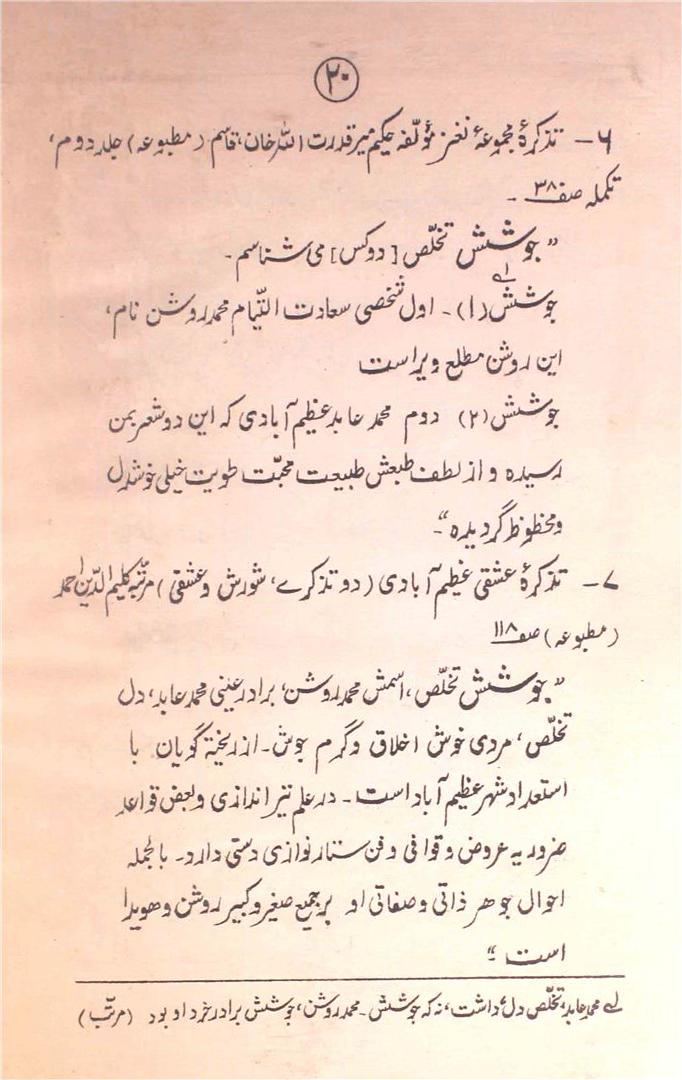 ۲۰
۶ــ تذکرۂ مجموعۂ نغز مؤلّفہ حکیم میر قدرت اللہ خان، قاسم (مطبوعہ) جلد دوم،
تکملہ صفـ ۳۸ ـ
"جوشش تخلّص [دوکس] می شناسم۔
جوشش (۱)۔ اول شخصی سعادت التیام محمد روشن نام،
این روشن مطلع ویراست
جوشش (۲) دوم محمد عابد عظیم آبادی کہ این دو شعر بمن
رسیدہ و از لطف طبعش طبیعت محبّت طویت خیلی خوشدل
و محظوظ گردیدہ"۔
۷ــ تذکرۂ عشقی عظیم آبادی (دو تذکرے، شورش و عشقی) مرتّبہ کلیم الدّین احمد
(مطبوعہ) صفـ ۱۱۸
"جوشش تخلّص، اسمش محمد روشن، برادر عینی محمد عابد، دل
تخلّص، مردی خوش اخلاق و گرم جوش۔ از ریختہ گویان با
استعداد شہر عظیم آباد است۔ در علم تیر اندازی و بعض قواعد
ضروریہ عروض و قوافی و فن ستار نوازی دستی دارد۔ بالجملہ
احوال جوھر ذاتی و صفاتی او بر جمیع صغیر و کبیر روشن و ھویدا
است"
لے محمد عابد، تخلّص دل داشت، نہ کہ جوشش۔ محمد روشن، جوشش برادر خرد او بود (مرتّب)